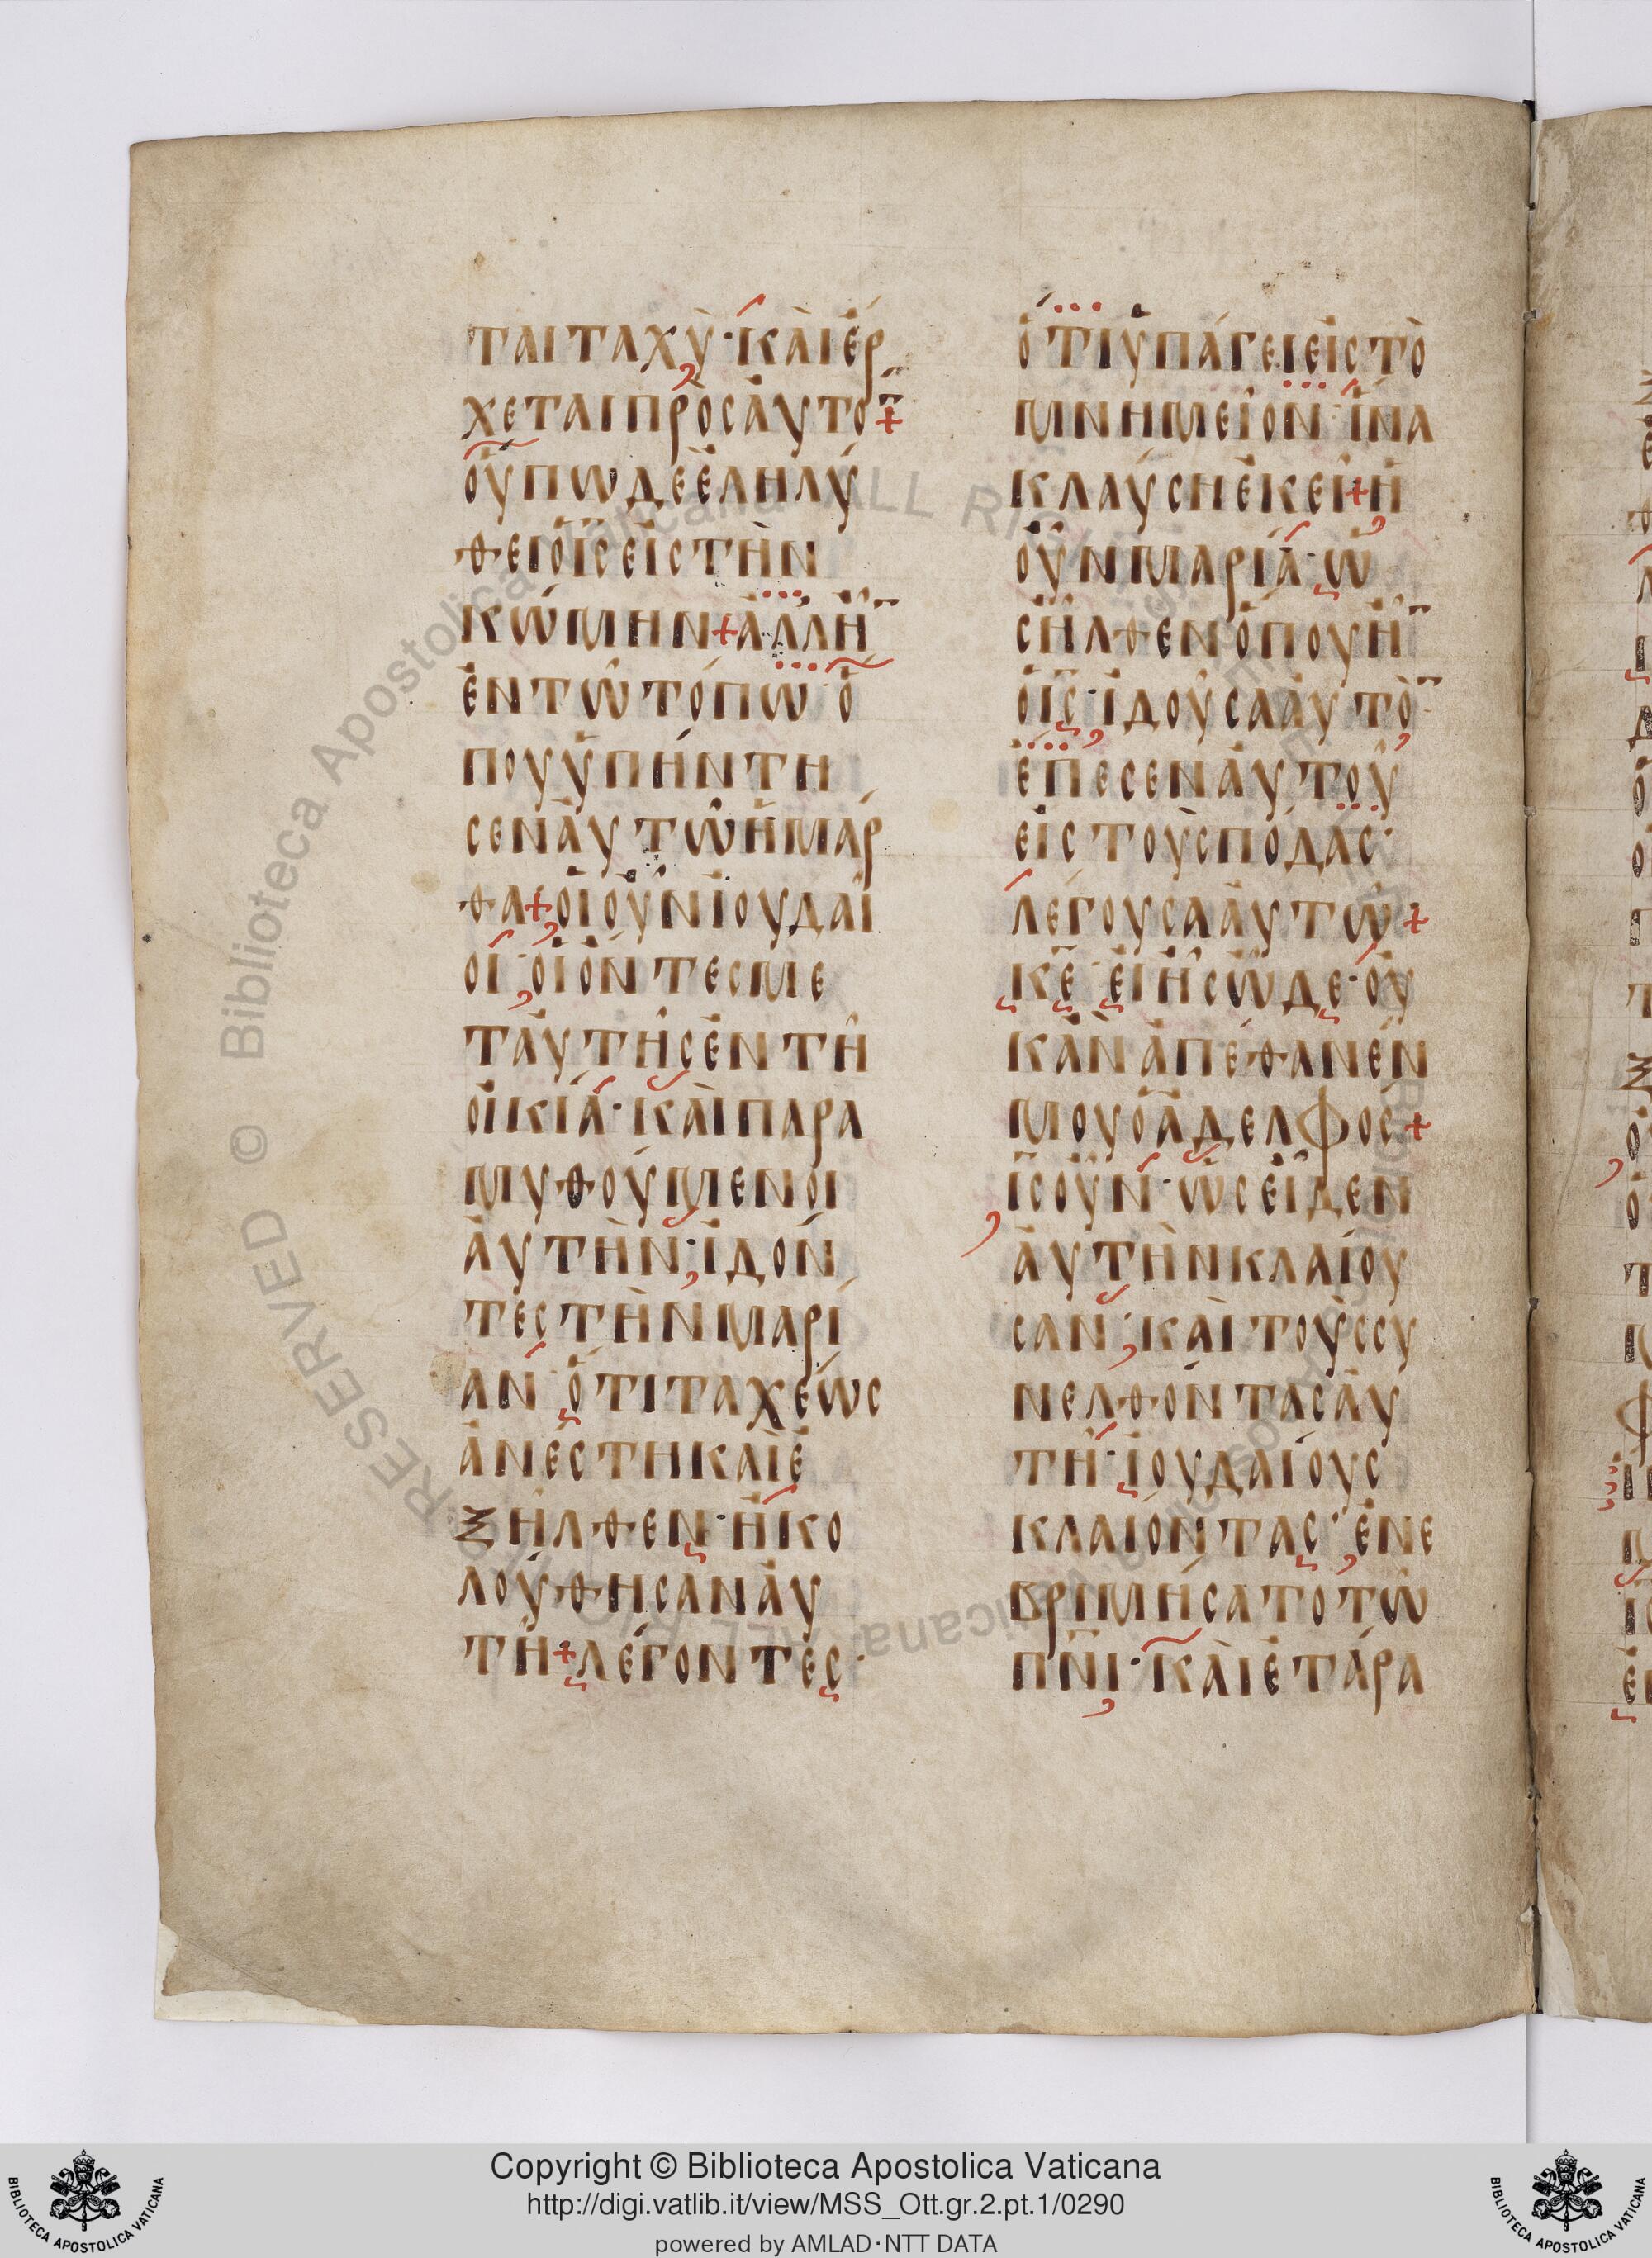 ται ταχύ· καὶ ἔρ
χεται πρὸς ἀυτο̅ +
ὄυπω δὲ ἐληλύ
θει ὁ ι̅ς̅ ἐις τὴν
κώμην + ἀλλ ἦ̅
ἐν τῶ τόπω· ὅ
που ὑπήντη
σεν ἀυτῶ ἡ μάρ
θα + ὁι οὖν ἰουδαῖ
οι· ὁι ὄντες με
τ ἀυτῆς ἐν τῆ
οἰκία· καὶ παρα
μυθούμενοι
ἀυτὴν· ἰδόν
τες τὴν μαρί
αν· ὅτι ταχέως
ἀνέστη καὶ ἐ
ξῆλθεν· ἠκο
λούθησαν ἀυ
τῆ + λέγοντες·
ὅτι ὑπάγει εἰς τὸ
μνημεῖον· ἵνα
κλαύση ἐκεῖ + ἡ
οὖν μαρία· ὡ
ς ἦλθεν ὅπου ἦ̅
ὁ ι̅ς̅· ἰδοῦσα ἀυτὸ̅·
ἔπεσεν ἀυτοῦ
εἰς τοὺς πόδας·
λέγουσα ἀυτῶ +
κ̅ε̅· εἰ ἦς ὧδε· οὐ
κ ἂν ἀπέθανέν
μου ὁ ἀδελφος +
ι̅ς̅ οὖν· ὡς εἶδεν
ἀυτὴν κλαίου
σαν· καὶ τοὺς συ
νελθόντας ἀυ
τῆ· ἰουδαίους
κλαίοντας· ἐνε
βριμήσατο τῶ
π̅ν̅ι̅· καὶ ἐτάρα
Biblioteca Apostolica Vaticana
ALL RIGHTS RESERVED ©
Copyright © Biblioteca Apostolica Vaticana
http://digi.vatlib.it/view/MSS_Ott.gr.2.pt.1/0290
powered by AMLAD·NTT DATA
BIBLIOTECA APOSTOLICA VATICANA
BIBLIOTECA APOSTOLICA VATICANA